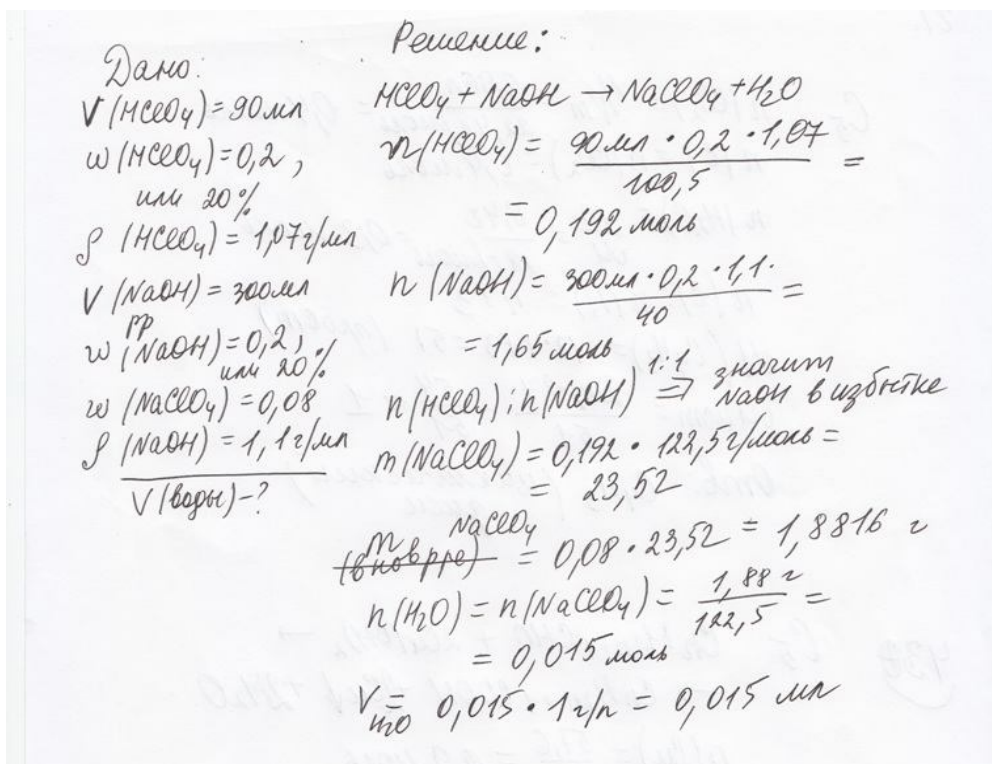 Дано:
V (HClO4) = 90 мл
w (HClO4) = 0,2,
или 20%
ρ (HClO4) = 1,07 г/мл
V (NaOH) = 300 мл
рр
w (NaOH) = 0,2,
или 20%
w (NaClO4) = 0,08
ρ (NaOH) = 1,1 г/мл
V (воды) - ?
Решение:
HClO4 + NaOH → NaClO4 + H2O
n(HClO4) = 90 мл · 0,2 · 1,07 / 100,5 =
= 0,192 моль
n (NaOH) = 300 мл · 0,2 · 1,1 · / 40 =
= 1,65 моль
n(HClO4) : n(NaOH) 1:1 ⇒ значит NaOH в избытке
m(NaClO4) = 0,192 · 122,5 г/моль =
= 23,52
m NaClO4
(в нов рре) = 0,08 · 23,52 = 1,8816 г
n(H2O) = n(NaClO4) = 1,88 г / 122,5 =
= 0,015 моль
V H2O = 0,015 · 1 г/л = 0,015 мл